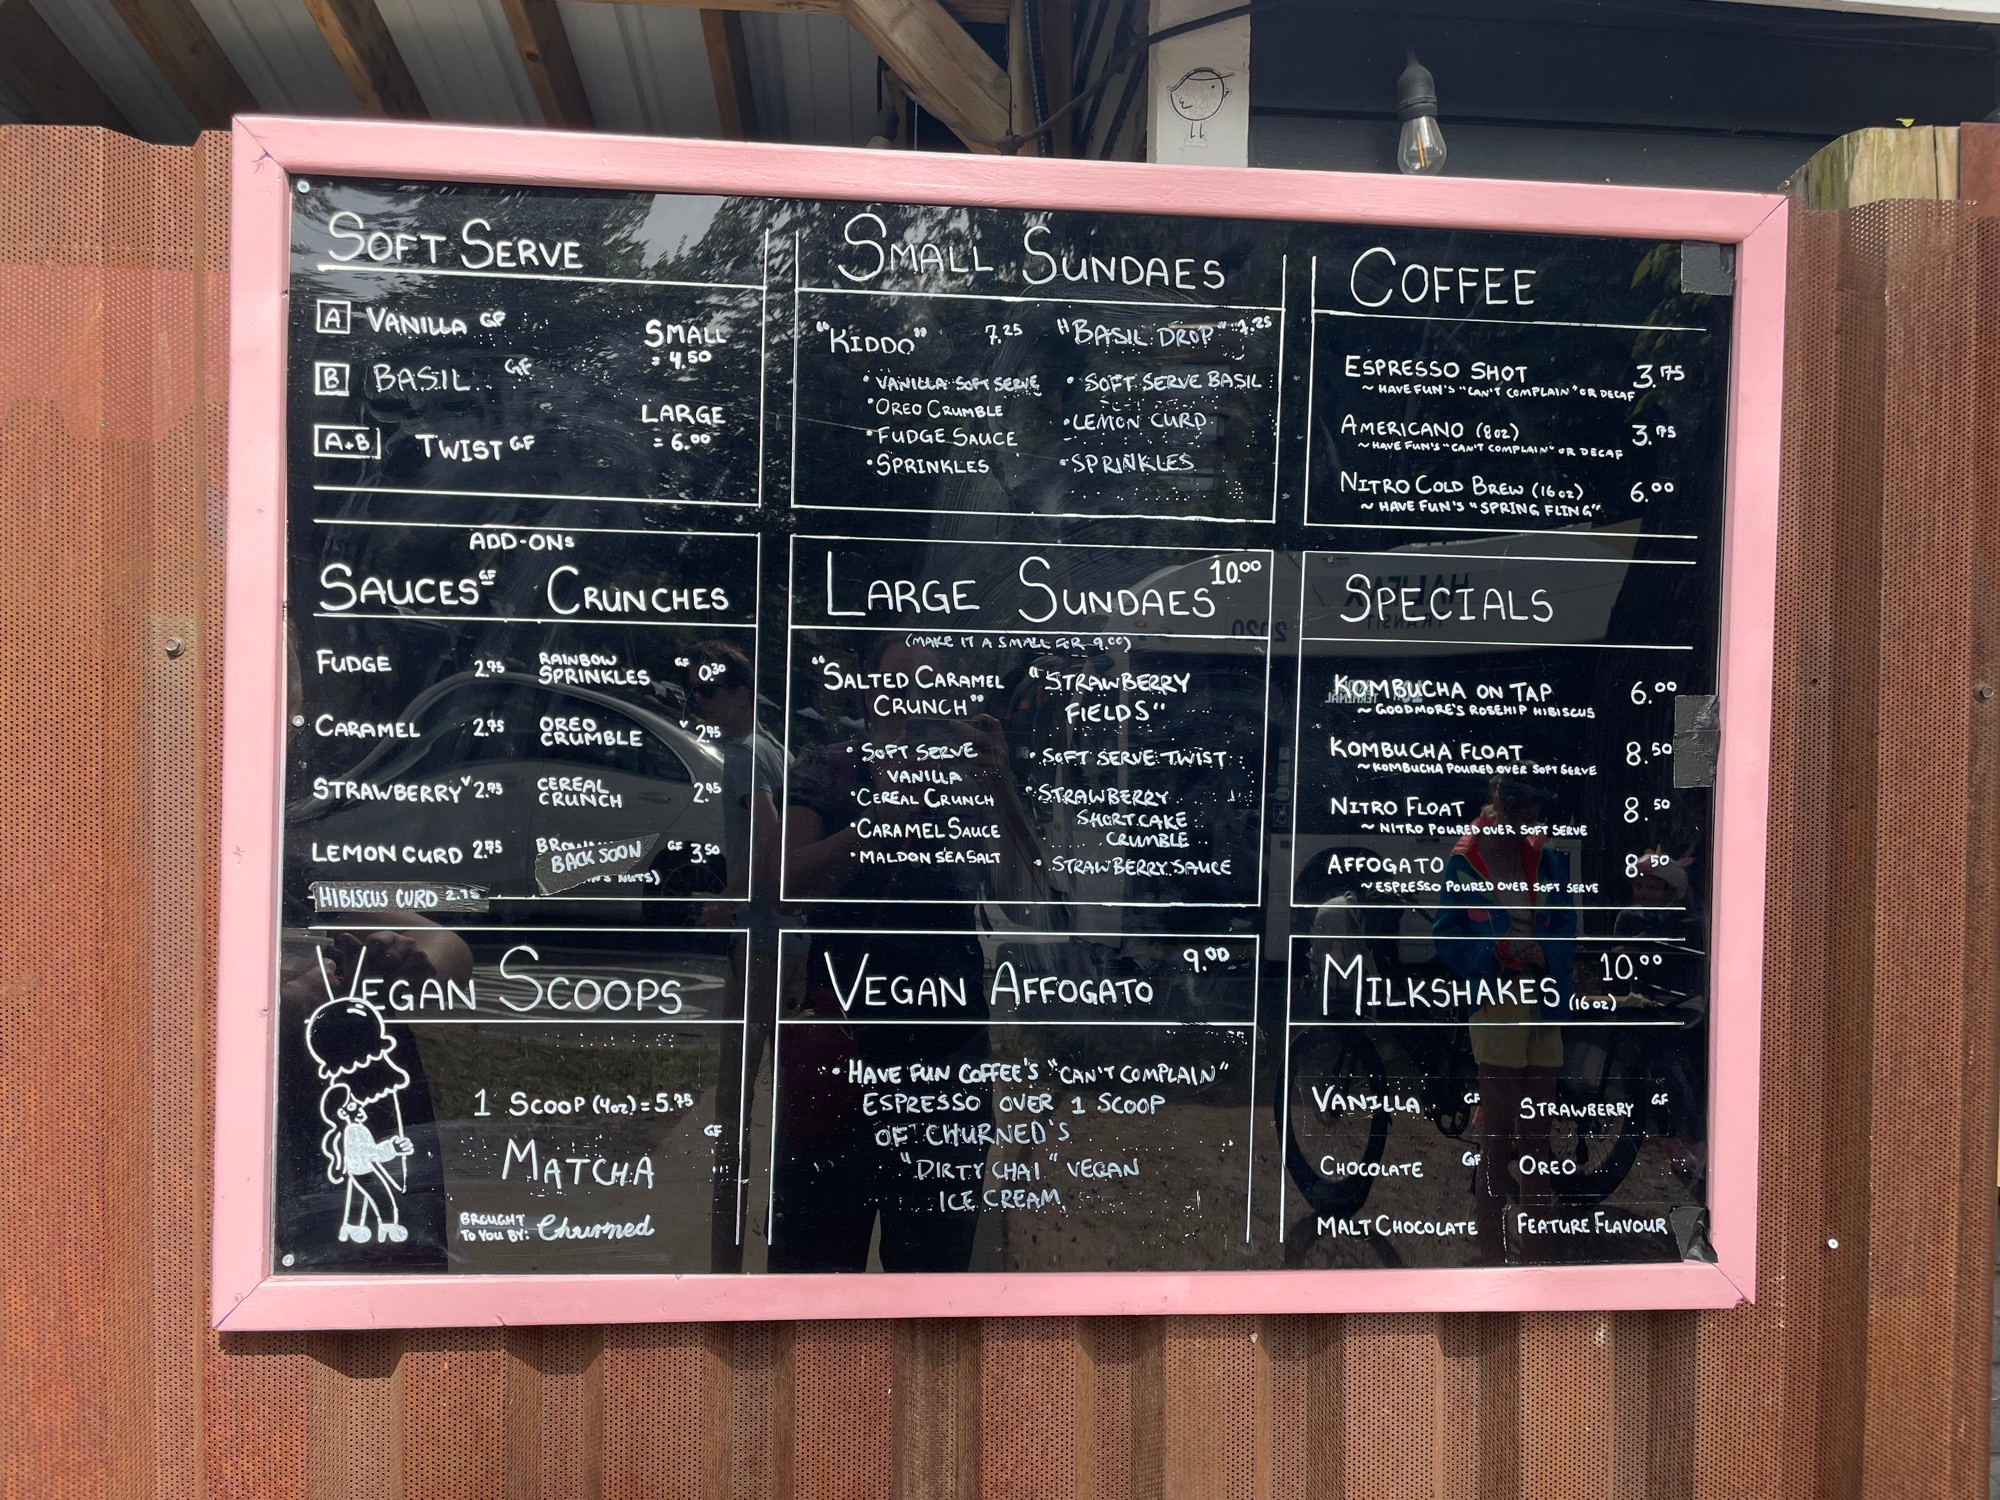 SOFT SERVE
A VANILLA GF
B BASIL GF
A+B TWIST GF
SMALL
= 4.50
LARGE
= 6.00
SMALL SUNDAES
"KIDDO" 7.25
• VANILLA SOFT SERVE
• OREO CRUMBLE
• FUDGE SAUCE
• SPRINKLES
"BASIL DROP" 7.25
• SOFT SERVE BASIL
• LEMON CURD
• SPRINKLES
COFFEE
ESPRESSO SHOT 3.75
~ HAVE FUN'S "CAN'T COMPLAIN" OR DECAF
AMERICANO (8oz) 3.75
~ HAVE FUN'S "CAN'T COMPLAIN" OR DECAF
NITRO COLD BREW (16oz) 6.00
~ HAVE FUN'S "SPRING FLING"
ADD-ONS
SAUCES GF
FUDGE 2.75
CARAMEL 2.75
STRAWBERRY V 2.75
LEMON CURD 2.75
HIBISCUS CURD 2.75
CRUNCHES
RAINBOW
SPRINKLES GF 0.30
OREO
CRUMBLE V 2.95
CEREAL
CRUNCH 2.95
BACK SOON GF 3.50
NUTS)
LARGE SUNDAES 10.00
(MAKE IT A SMALL FOR 9.00)
"SALTED CARAMEL
CRUNCH"
• SOFT SERVE
VANILLA
• CEREAL CRUNCH
• CARAMEL SAUCE
• MALDON SEA SALT
"STRAWBERRY
FIELDS"
• SOFT SERVE TWIST
• STRAWBERRY
SHORTCAKE
CRUMBLE
• STRAWBERRY SAUCE
SPECIALS
KOMBUCHA ON TAP 6.00
~ GOODMORE'S ROSEHIP HIBISCUS
KOMBUCHA FLOAT 8.50
~ KOMBUCHA POURED OVER SOFT SERVE
NITRO FLOAT 8.50
~ NITRO POURED OVER SOFT SERVE
AFFOGATO 8.50
~ ESPRESSO POURED OVER SOFT SERVE
VEGAN SCOOPS
1 SCOOP (4oz) = 5.75
GF
MATCHA
BROUGHT
TO YOU BY: Churned
VEGAN AFFOGATO 9.00
• HAVE FUN COFFEE'S "CAN'T COMPLAIN"
ESPRESSO OVER 1 SCOOP
OF CHURNED'S
"DIRTY CHAI" VEGAN
ICE CREAM
MILKSHAKES (16oz) 10.00
VANILLA GF
STRAWBERRY GF
CHOCOLATE GF
OREO
MALT CHOCOLATE
FEATURE FLAVOUR